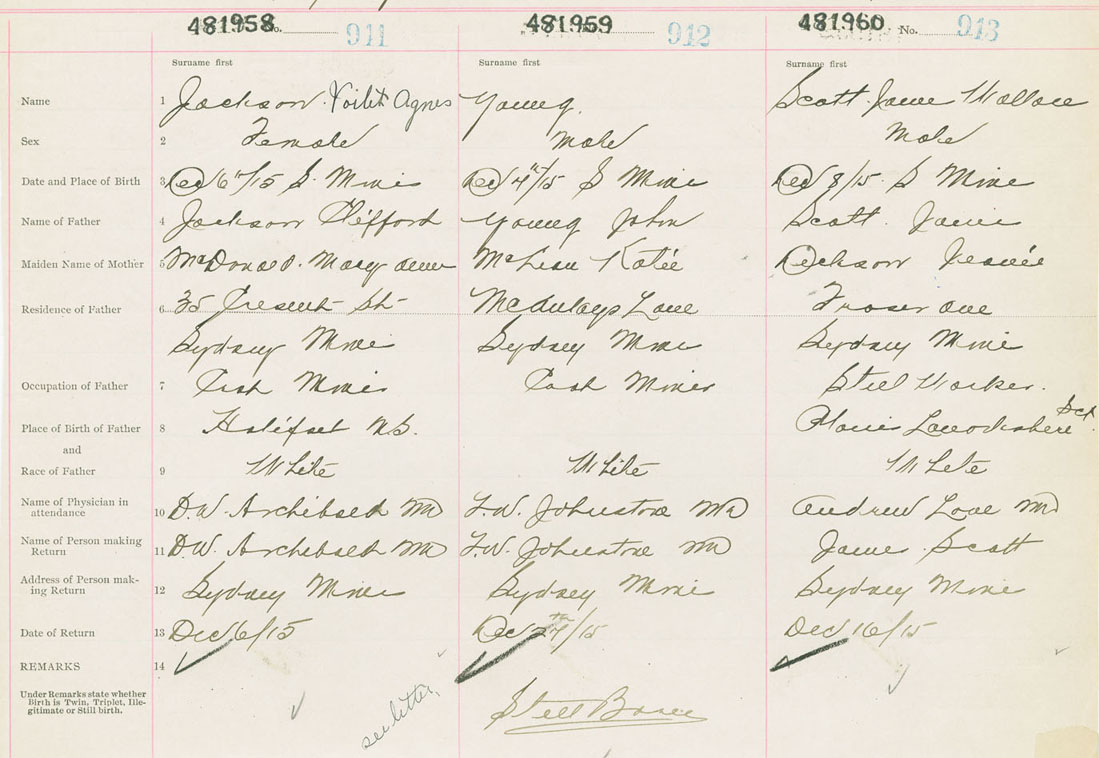 481958 No. 911 481959 912 481960 No. 913
Surname first Surname first Surname first
Name 1 Jackson Voilet Agnes Young. Scott James Wallace
Sex 2 Female Male Male
Date and Place of Birth 3 Dec 6th/15 S. Mines Dec 4th/15 S Mines Dec 8/15. S Mines
Name of Father 4 Jackson Clifford Young John Scott. James
Maiden Name of Mother 5 McDonald. Mary Annie McLean Katie Jessie
Residence of Father 6 35 Cresent St McAulays Lane Fraser Ave
Sydney Mines Sydney Mines Sydney Mines
Occupation of Father 7 Miner Miner Steel Worker.
Place of Birth of Father 8 Halifax N.S. Lanarkshire Sct.
and
Race of Father 9 White White White
Name of Physician in
attendance 10 D.W. Archibald MD L.W. Johnstone MD Andrew Love MD
Name of Person making
Return 11 D.W. Archibald MD L.W. Johnstone MD James Scott
Address of Person mak-
ing Return 12 Sydney Mines Sydney Mines Sydney Mines
Date of Return 13 Dec 6/15 Dec /15 Dec 16/15
REMARKS 14
Under Remarks state whether
Birth is Twin, Triplet, Ille-
gitimate or Still birth.
see letter Still Born